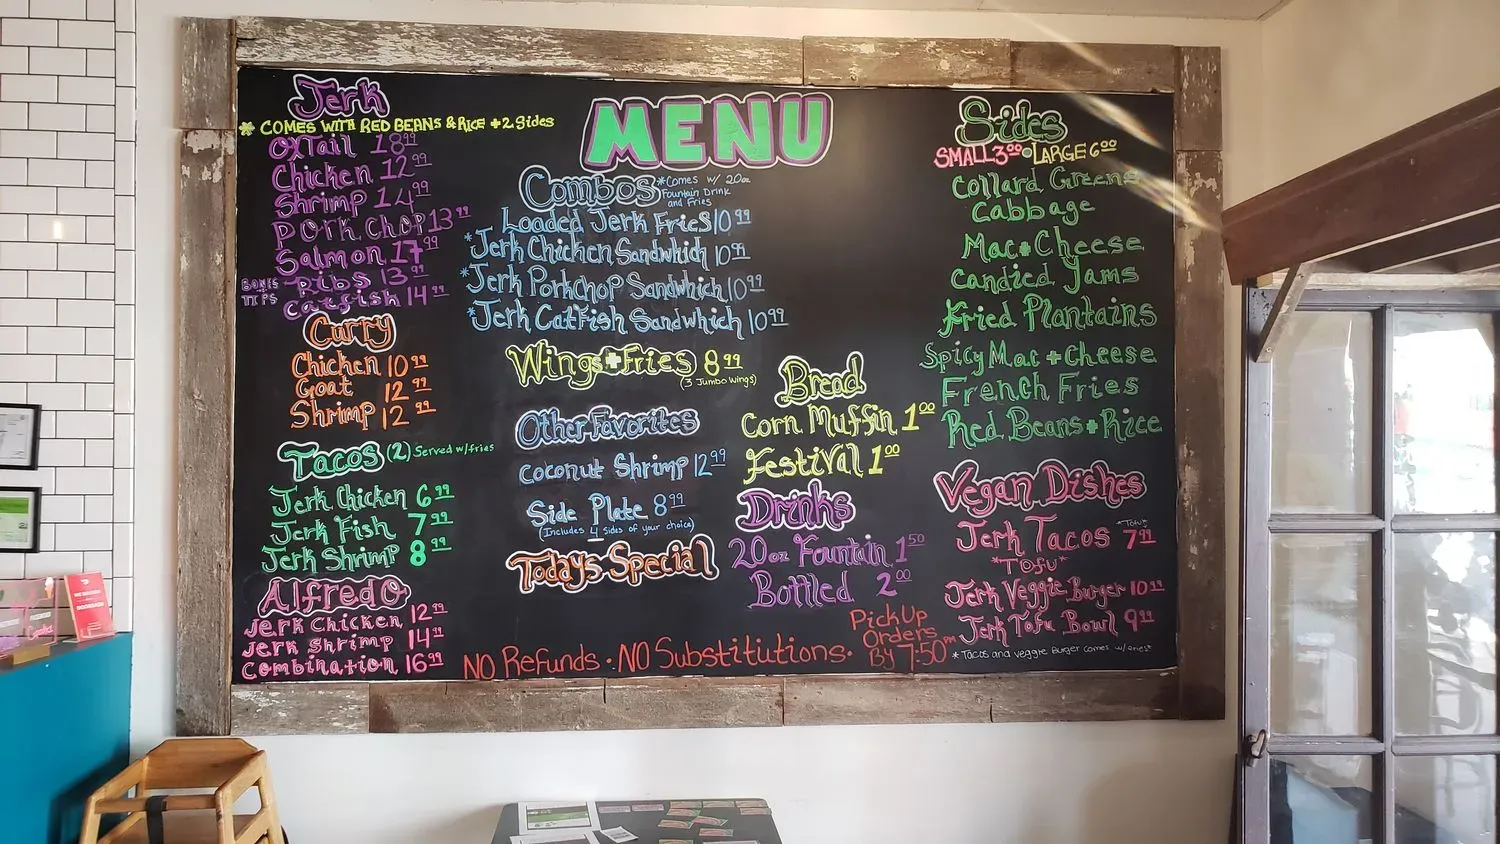 Jerk
* COMES WITH RED BEANS & RICE + 2 Sides
OxTail 18.99
Chicken 12.99
Shrimp 14.99
Pork Chop 13.99
Salmon 17.99
Ribs 13.99
BONES TIPS
Catfish 14.99
Curry
Chicken 10.99
Goat 12.99
Shrimp 12.99
Tacos (2) Served w/fries
Jerk Chicken 6.99
Jerk Fish 7.99
Jerk Shrimp 8.99
Alfredo
Jerk Chicken 12.99
Jerk Shrimp 14.99
Combination 16.99
MENU
Combos *Comes w/ 20oz
Fountain Drink
and Fries
Loaded Jerk Fries 10.99
*Jerk Chicken Sandwhich 10.99
*Jerk Porkchop Sandwhich 10.99
*Jerk Catfish Sandwhich 10.99
Wings + Fries 8.99
(3 Jumbo Wings)
Other Favorites
Coconut Shrimp 12.99
Side Plate 8.99
(Includes 4 sides of your choice)
Todays Special
Bread
Corn Muffin 1.00
Festival 1.00
Drinks
20oz Fountain 1.50
Bottled 2.00
Sides
SMALL 3.00 • LARGE 6.00
Collard Greens
Cabbage
Mac + Cheese
Candied Yams
Fried Plantains
Spicy Mac + Cheese
French Fries
Red Beans + Rice
Vegan Dishes
Jerk Tacos *Tofu* 7.99
*Tofu*
Jerk Veggie Burger 10.99
Jerk Tofu Bowl 9.99
*Tacos and Veggie Burger comes w/fries*
NO Refunds • NO Substitutions •
Pick Up
Orders
By 7:50pm